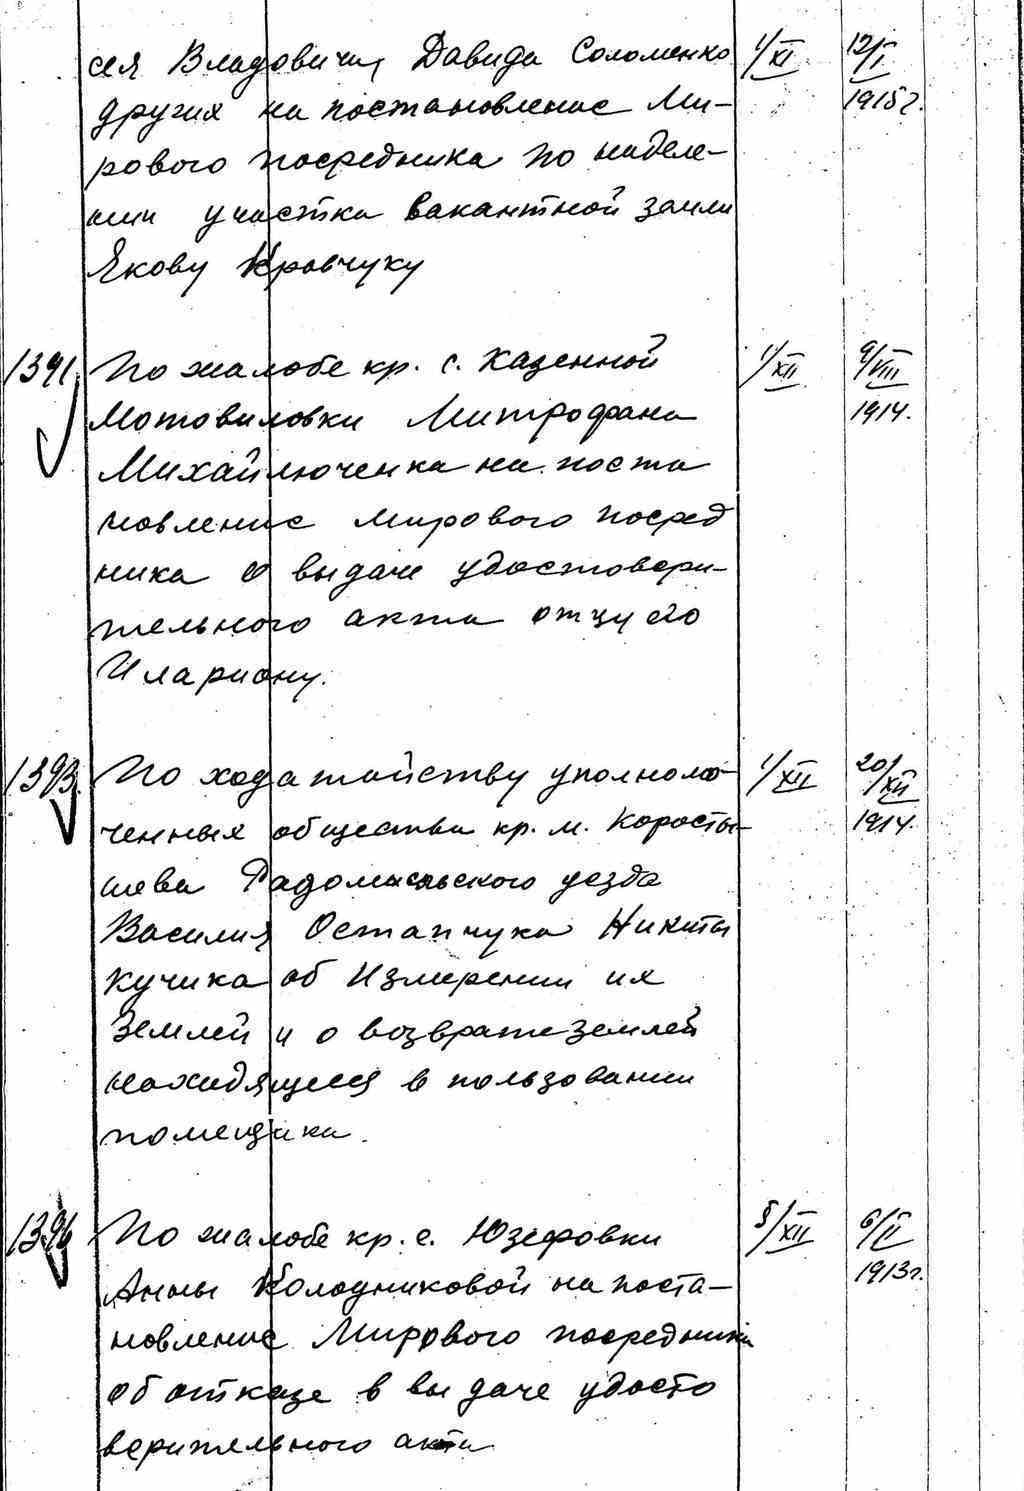 сея Владовича, Давида Соломенко 1/XI 12/I
других на постановление Ми- 1915 г.
рового посредника по наделе-
нии участка вакантной земли
Якову Кравчуку
1391. По жалобе кр. с. Казенной 1/XII 9/VIII
Мотовиловки Митрофана 1914.
Михайлюченка на поста
новление мирового посред
ника о выдаче удостовери-
тельного акта отцу его
Илариону.
1393. По ходатайству уполномо- 1/XII 20/XII
ченных общества кр. м. Коросты- 1914.
шева Радомысльского уезда
Василия Остапчука Никиты
Кучика об измерении их
земли и о возврате землей
находящиеся в пользовании
помещика.
1396 По жалобе кр. с. Юзефовки 8/XII 6/II
Анны Колодниковой на поста- 1913 г.
новление Мирового посредника
об отказе в выдаче удосто
верительного акта